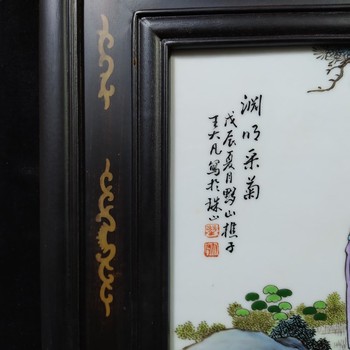 渊明采菊
戊辰夏月黟山樵子
王大凡写於珠山